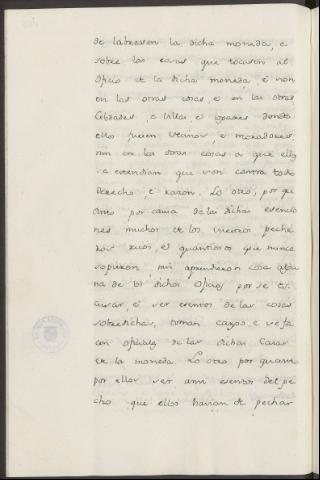 de labrassen la dicha moneda, e
sobre las cosas que tocasen al
oficio de la dicha moneda, é non
en las otras cosas, e en las otras
Cibdades, e Villas e logares donde
ellos fuesen vecinos, e moradores,
nin en las otras cosas a que ellos
se estendian que son contra todo
derecho, e razon. Lo otro, por que
por causa de las dichas esencio
nes muchos de los vuestros peche
ros ricos, é quantiosos que nunca
sopieron, nin aprendieron cosa algu
na de los dichos Oficios por se es
cusar, é ser esentos de las cosas
sobredichas, toman cargo, e se fa
cen oficiales de las dichas Casas
de la moneda. Lo otro por quanto
por ellos ser ansi esentos del pe
cho que ellos havian de pechar